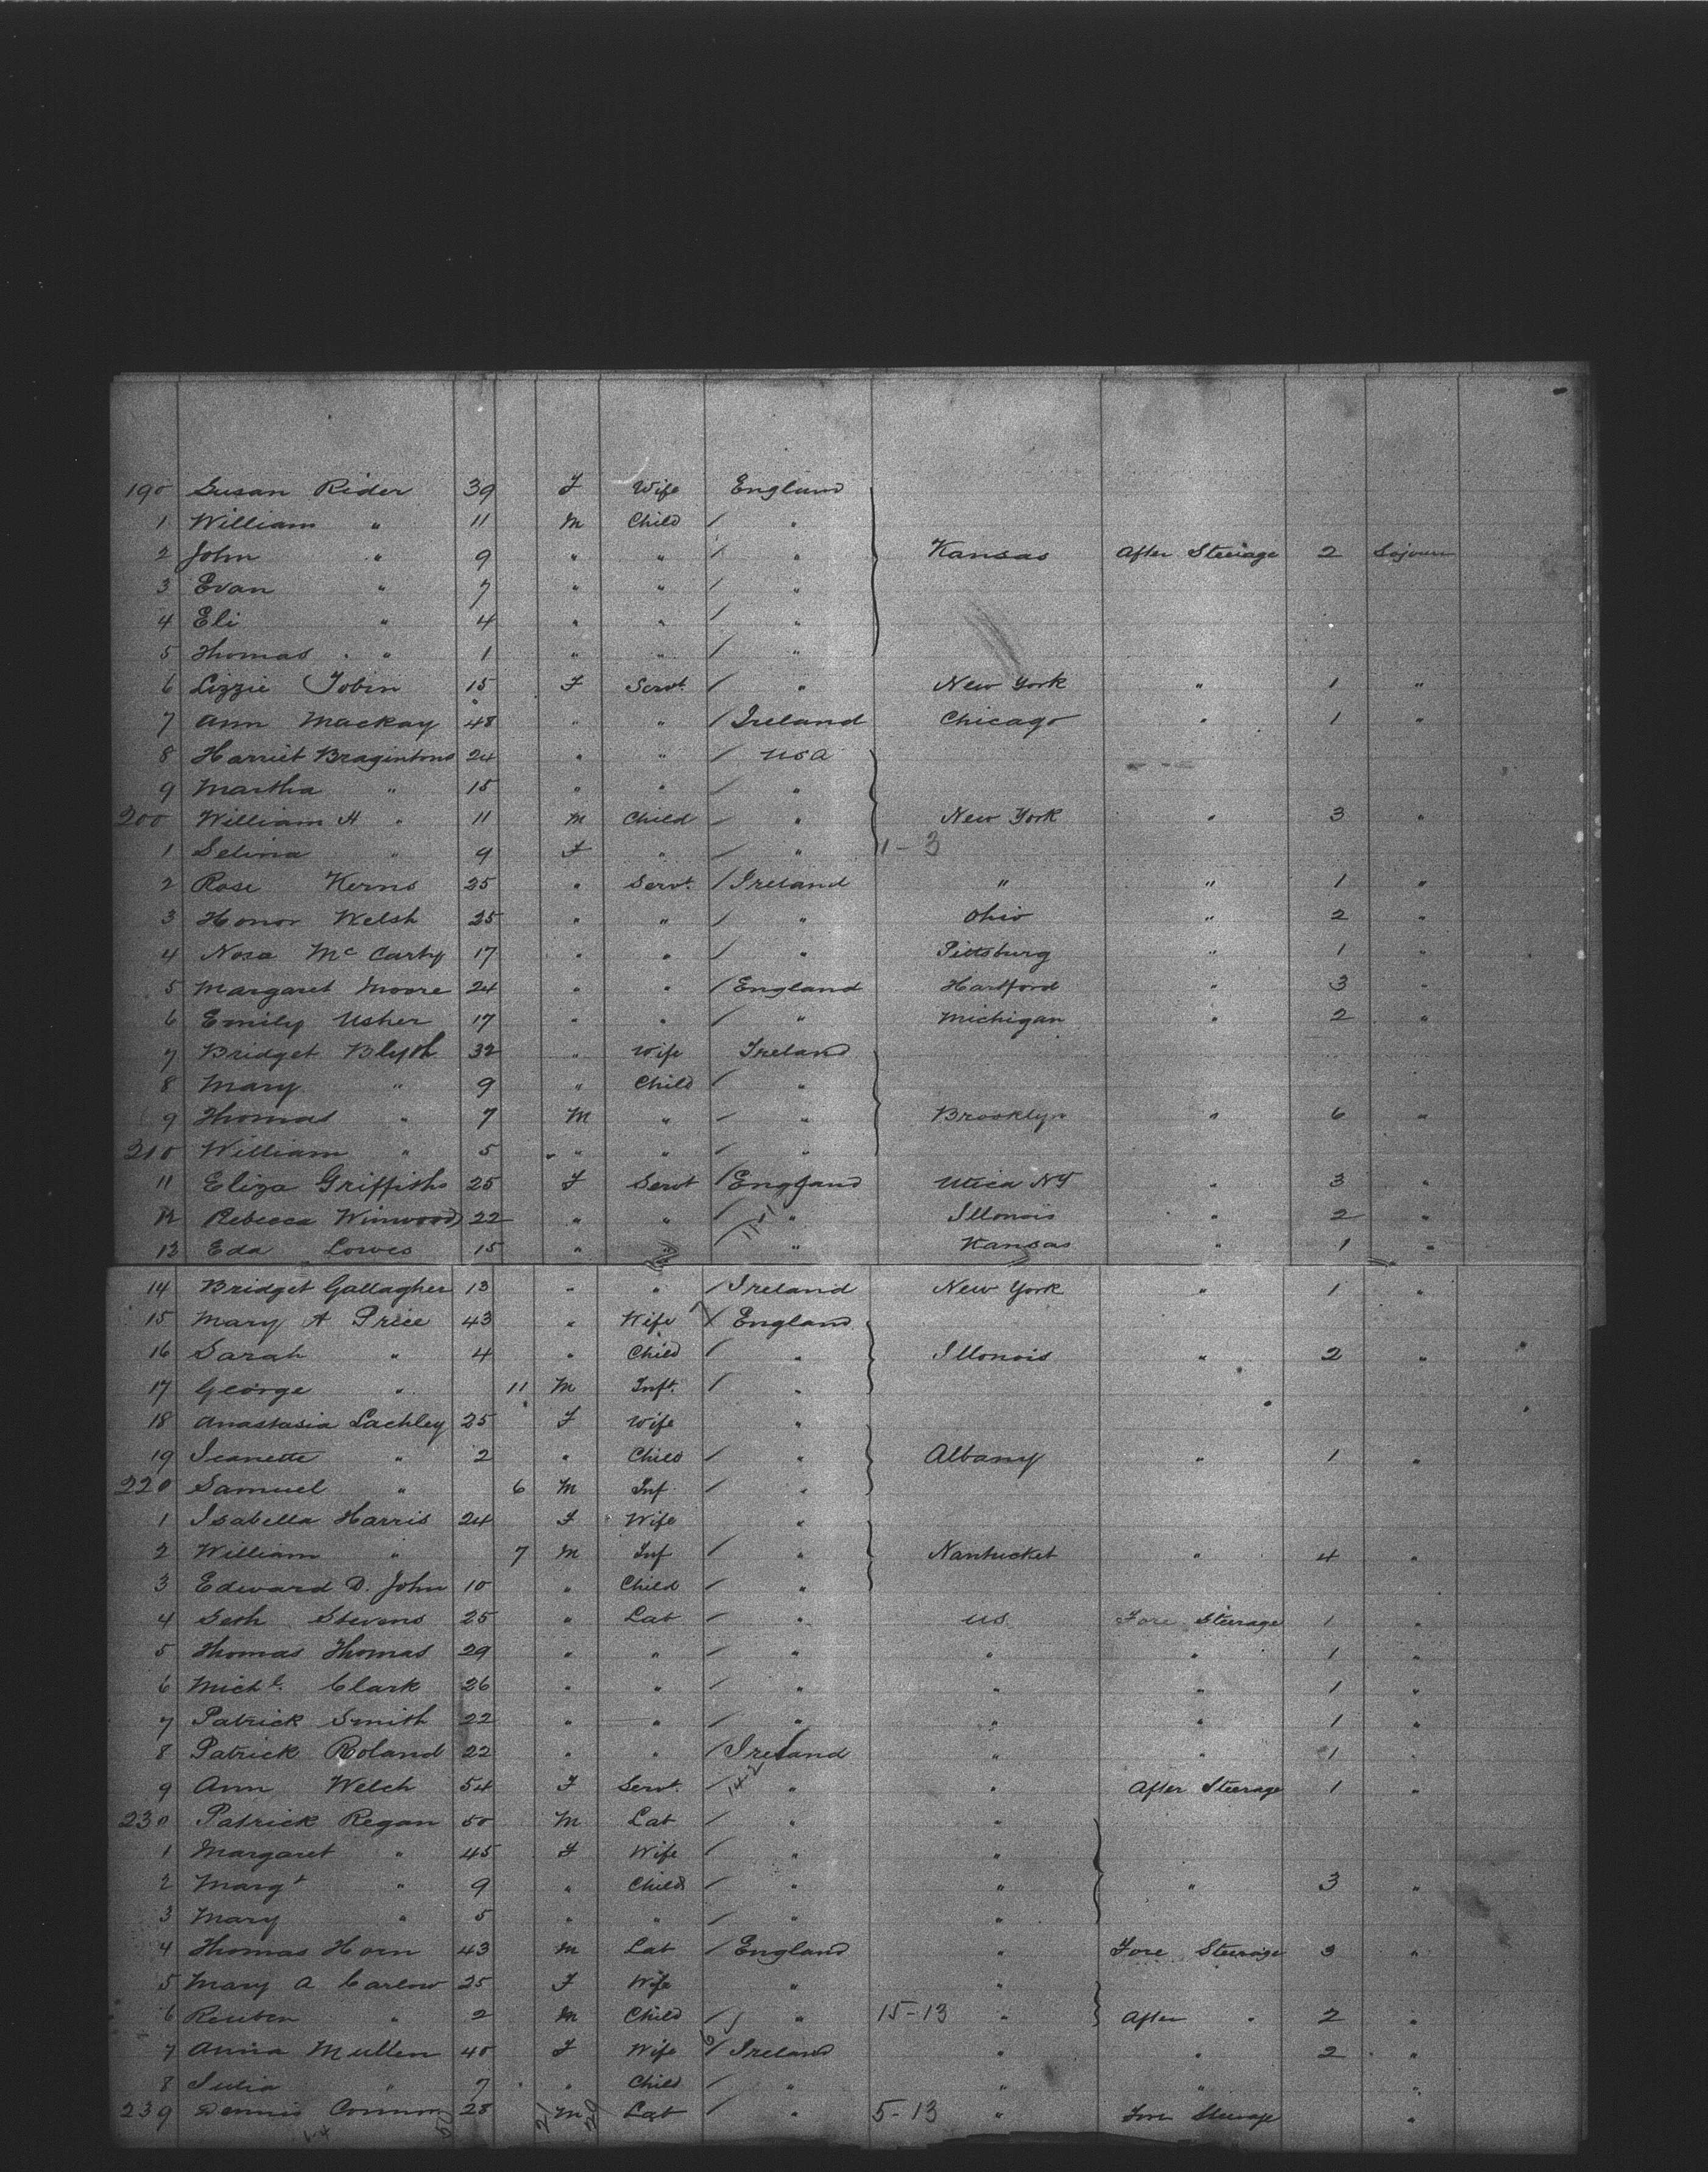 190 Susan Rider 39 F Wife England
1 William " 11 M Child / "
2 John " 9 " " / " Kansas After Steerage 2 Sojourn
3 Evan " 7 " " / "
4 Eli " 4 " " / "
5 Thomas " 1 " " / "
6 Lizzie Tobin 15 F Servt. / " New York " 1 "
7 Ann Mackay 48 " " / Ireland Chicago " 1 "
8 Harriet Bragintons 24 " " / USA
9 Martha " 15 " " / "
200 William H " 11 M Child / " New York " 3 "
1 Selina " 9 F " / " 1-3
2 Rose Kerns 25 " Servt. / Ireland " " 1 "
3 Honor Welsh 25 " " / " Ohio " 2 "
4 Nora Mc Carty 17 " " / " Pittsburg " 1 "
5 Margaret Moore 24 " " / England Hartford " 3 "
6 Emily Usher 17 " " / " Michigan " 2 "
7 Bridget Blyth 32 " Wife Ireland
8 Mary " 9 " Child / "
9 Thomas " 7 M " / " Brooklyn " 6 "
210 William " 5 " " / "
11 Eliza Griffiths 25 F Servt / England Utica NY " 3 "
12 Rebecca Winwood 22 " " / " Illonois " 2 "
13 Eda Lowes 15 " " " Kansas " 1 "
14 Bridget Gallagher 13 " " / Ireland New York " 1 "
15 Mary A Price 43 " Wife / England
16 Sarah " 4 " Child / " Illonois " 2 "
17 George " 11 M Inft. / "
18 Anastasia Lachley 25 F Wife "
19 Jeanette " 2 " Child / " Albany " 1 "
220 Samuel " 6 M Inf / "
1 Isabella Harris 24 F Wife "
2 William " 7 M Inf / " Nantucket " 4 "
3 Edward D. John 10 " Child / "
4 Seth Stevens 25 " Lab / " US Fore Steerage 1 "
5 Thomas Thomas 29 " " / " " " 1 "
6 Michl. Clark 26 " " / " " " 1 "
7 Patrick Smith 22 " " / " " " 1 "
8 Patrick Roland 22 " " / Ireland " " 1 "
9 Ann Welch 54 F Servt. / " " After Steerage 1 "
230 Patrick Regan 50 M Lab / " "
1 Margaret " 45 F Wife / " "
2 Margt " 9 " Child / " " " 3 "
3 Mary " 5 " " / " "
4 Thomas Horn 43 M Lab / England " Fore Steerage 3 "
5 Mary A Carlow 25 F Wife " "
6 Reuben " 2 M Child / " 15-13 " After " 2 "
7 Anna Mullen 40 F Wife / Ireland " " 2 "
8 Julia " 7 " Child / " " " "
239 Dennis Connor 28 M Lab / " 5-13 " Fore Steerage "